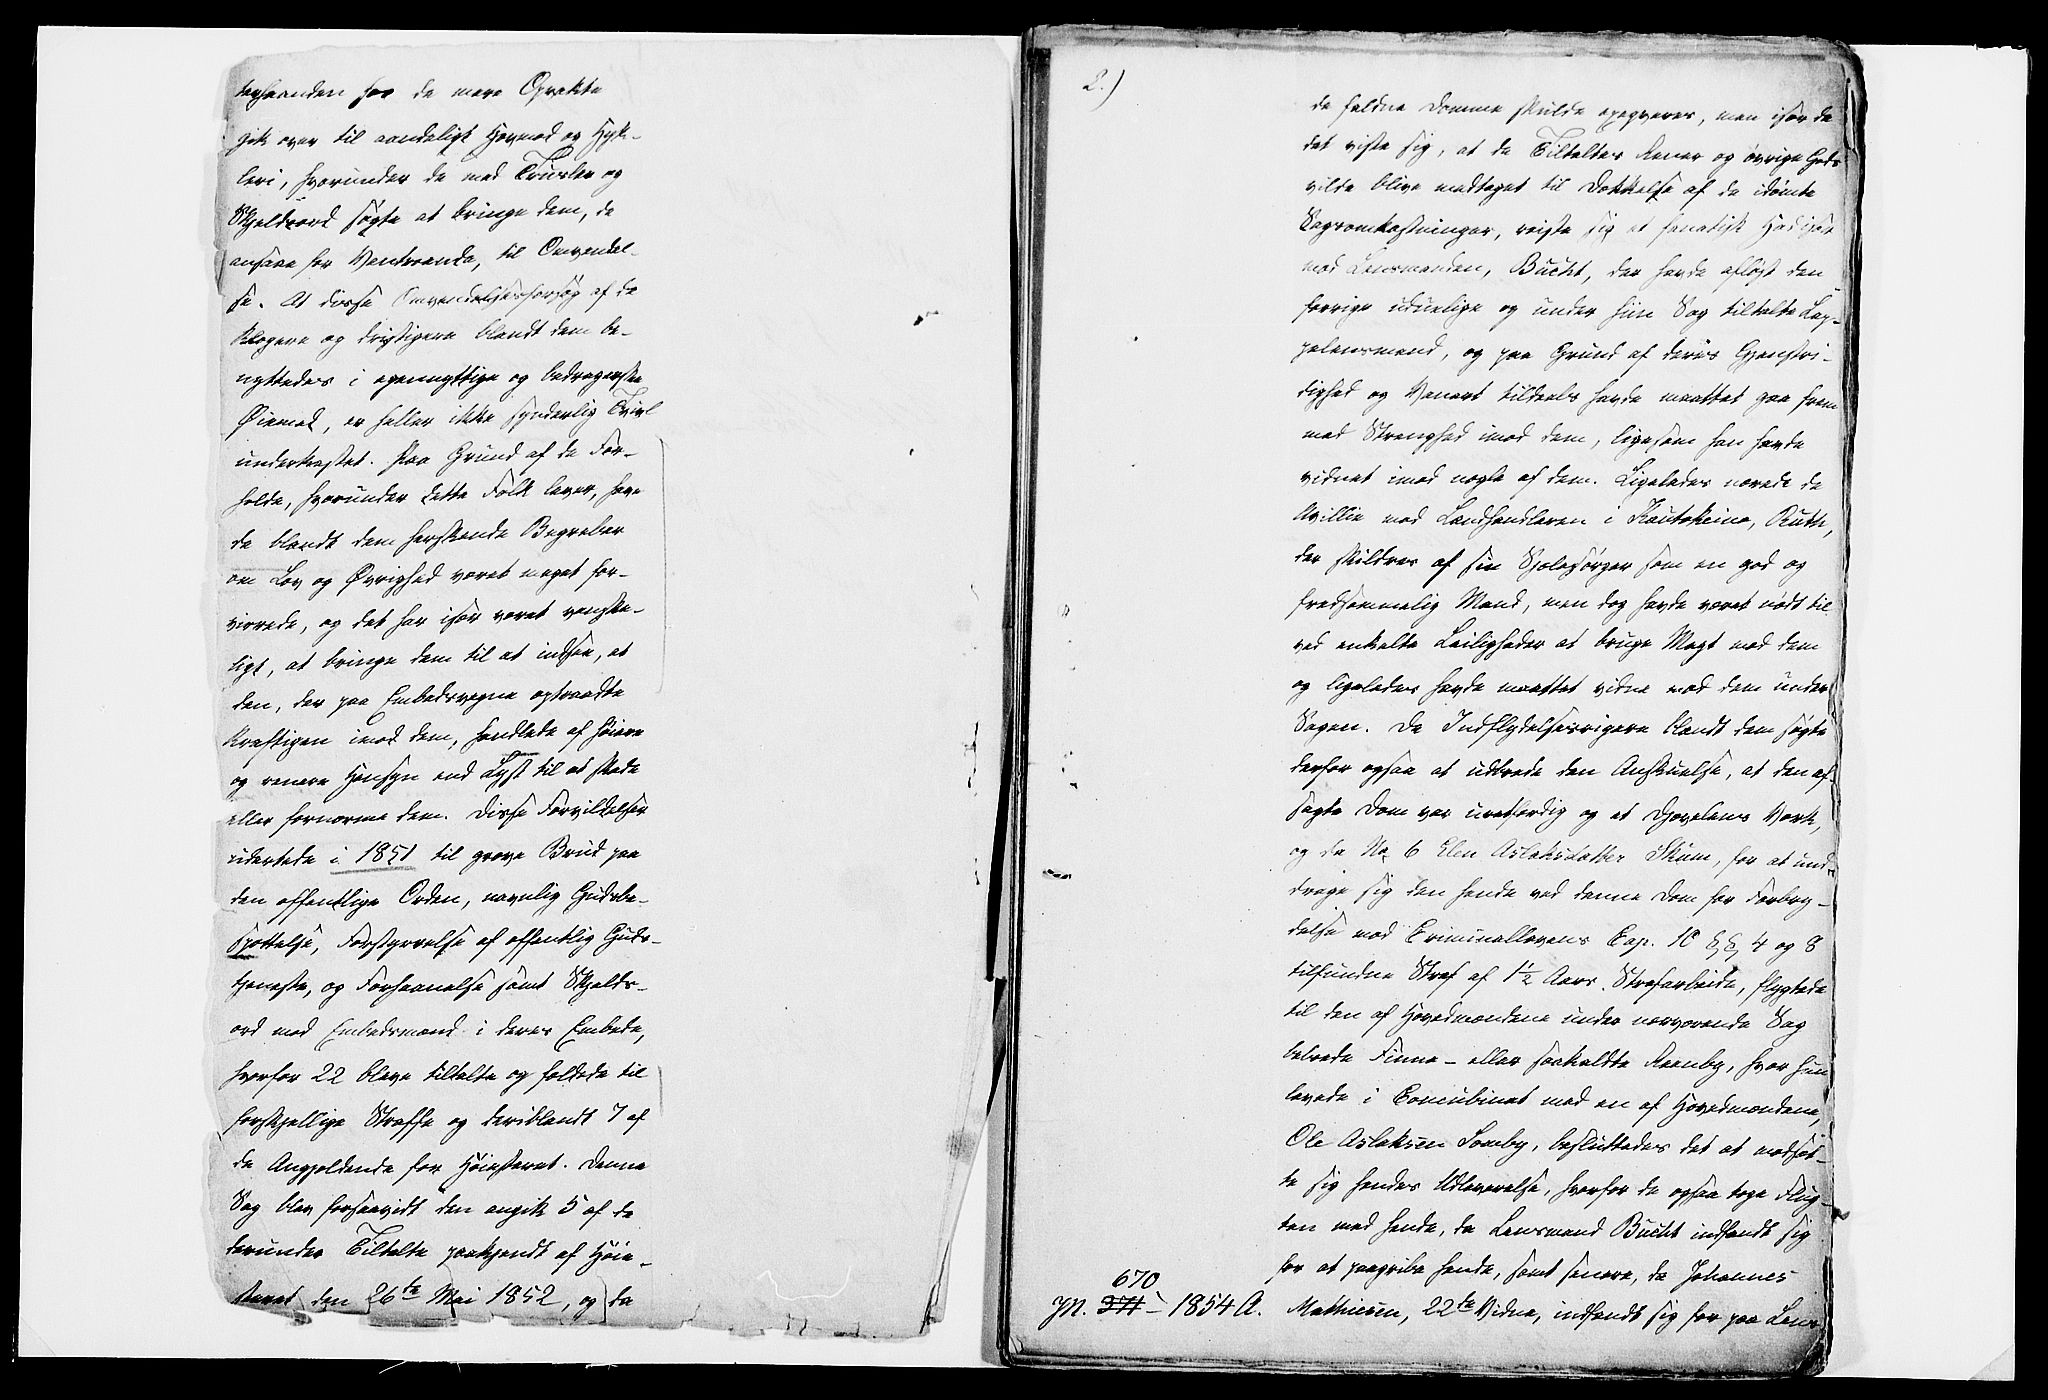 terhaanden hos de mere Opvakte
gik over til aandeligt Hovmod og Hyk-
leri, hvorunder de med Trusler og
Skjeldsord søgte at bringe dem, de
ansaae for Vantroende, til Omvendel-
se. At disse Omvendelsesforsøg af de
klogere og dristigere blandt dem be-
nyttedes i egennyttige og bedragerske
Øiemed, er heller ikke synderlig Tvivl
underkastet. Paa Grund af de For-
holde, hvorunder dette Folk lever, have
de blandt dem herskende Begreber
om Lov og Øvrighed været meget for-
virrede, og det har især været vanske-
ligt, at bringe dem til at indsee, at
den, der paa Embedsvegne optraadte
kraftigen imod dem, handlede af høiere
og renere Hensyn end Lyst til at skade
eller fornærme dem. Disse Forvildelser
udartede i 1851 til grove Brud paa
den offentlige Orden, navnlig Gudsbe-
spottelse, Forstyrrelse af offentlig Guds-
tjeneste, og Forhaanelse samt Skjelds-
ord mod Embedsmænd i deres Embede,
hvorfor 22 bleve tiltalte og fældede til
forskjellige Straffe og deriblandt 7 af
de Angjældende for Høiesteret. Denne
Sag blev forsaavidt den angik 5 af de
derunder Tiltalte paakjendt af Høie-
steret den 26de Mai 1852, og da
2.)
de fældne Domme skulde exeqveres, men især da
det viste sig, at de Tiltaltes Rener og øvrige Gods
vilde blive medtaget til Dækkelse af de idømte
Sagsomkostninger, reiste sig et fanatisk Had især
mod Lensmanden, Bucht, der havde afløst den
forrige uduelige og under hiin Sag tiltalte Lap-
pelensmand, og paa Grund af deres Gjenstri-
dighed og Vanart tildeels havde maattet gaae frem
med Strenghed imod dem, ligesom han havde
vidnet imod nogle af dem. Ligeledes nærede de
Avillie mod Landhandleren i Kautokeino, Ruth,
der skildres af sin Sjælesørger som en god og
fredsommelig Mand, men dog havde været nødt til
ved enkelte Leiligheder at bruge Magt mod dem
og ligeledes havde maattet vidne mod dem under
Sagen. De Indflydelsesrigere blandt dem søgte
derfor ogsaa at udbrede den Anskuelse, at den af-
sagte Dom var uretfærdig og et Djævelens Værk,
og da No 6 Elen Aslaksdatter Skum, for at und-
drage sig den hende ved denne Dom for Forbry-
delse mod Criminallovens Cap. 10 §§ 4 og 8
tilfundne Straf af 1½ Aars Strafarbeide, flygtede
til den af Hovedmændene under nærværende Sag
beboede Finne- eller saakaldte Reenby, hvor hun
levede i Concubinat med en af Hovedmændene,
Ole Aslaksen Somby, besluttedes det at modsæt-
te sig hendes Udleverelse, hvorfor de ogsaa toge Flug-
ten med hende, da Lensmand Bucht indfandt sig
for at paagribe hende, samt senere, da Johannes
Mathiesen, 22de Vidne, indfandt sig for paa Lens-
670
JN. 371 - 1854 A.